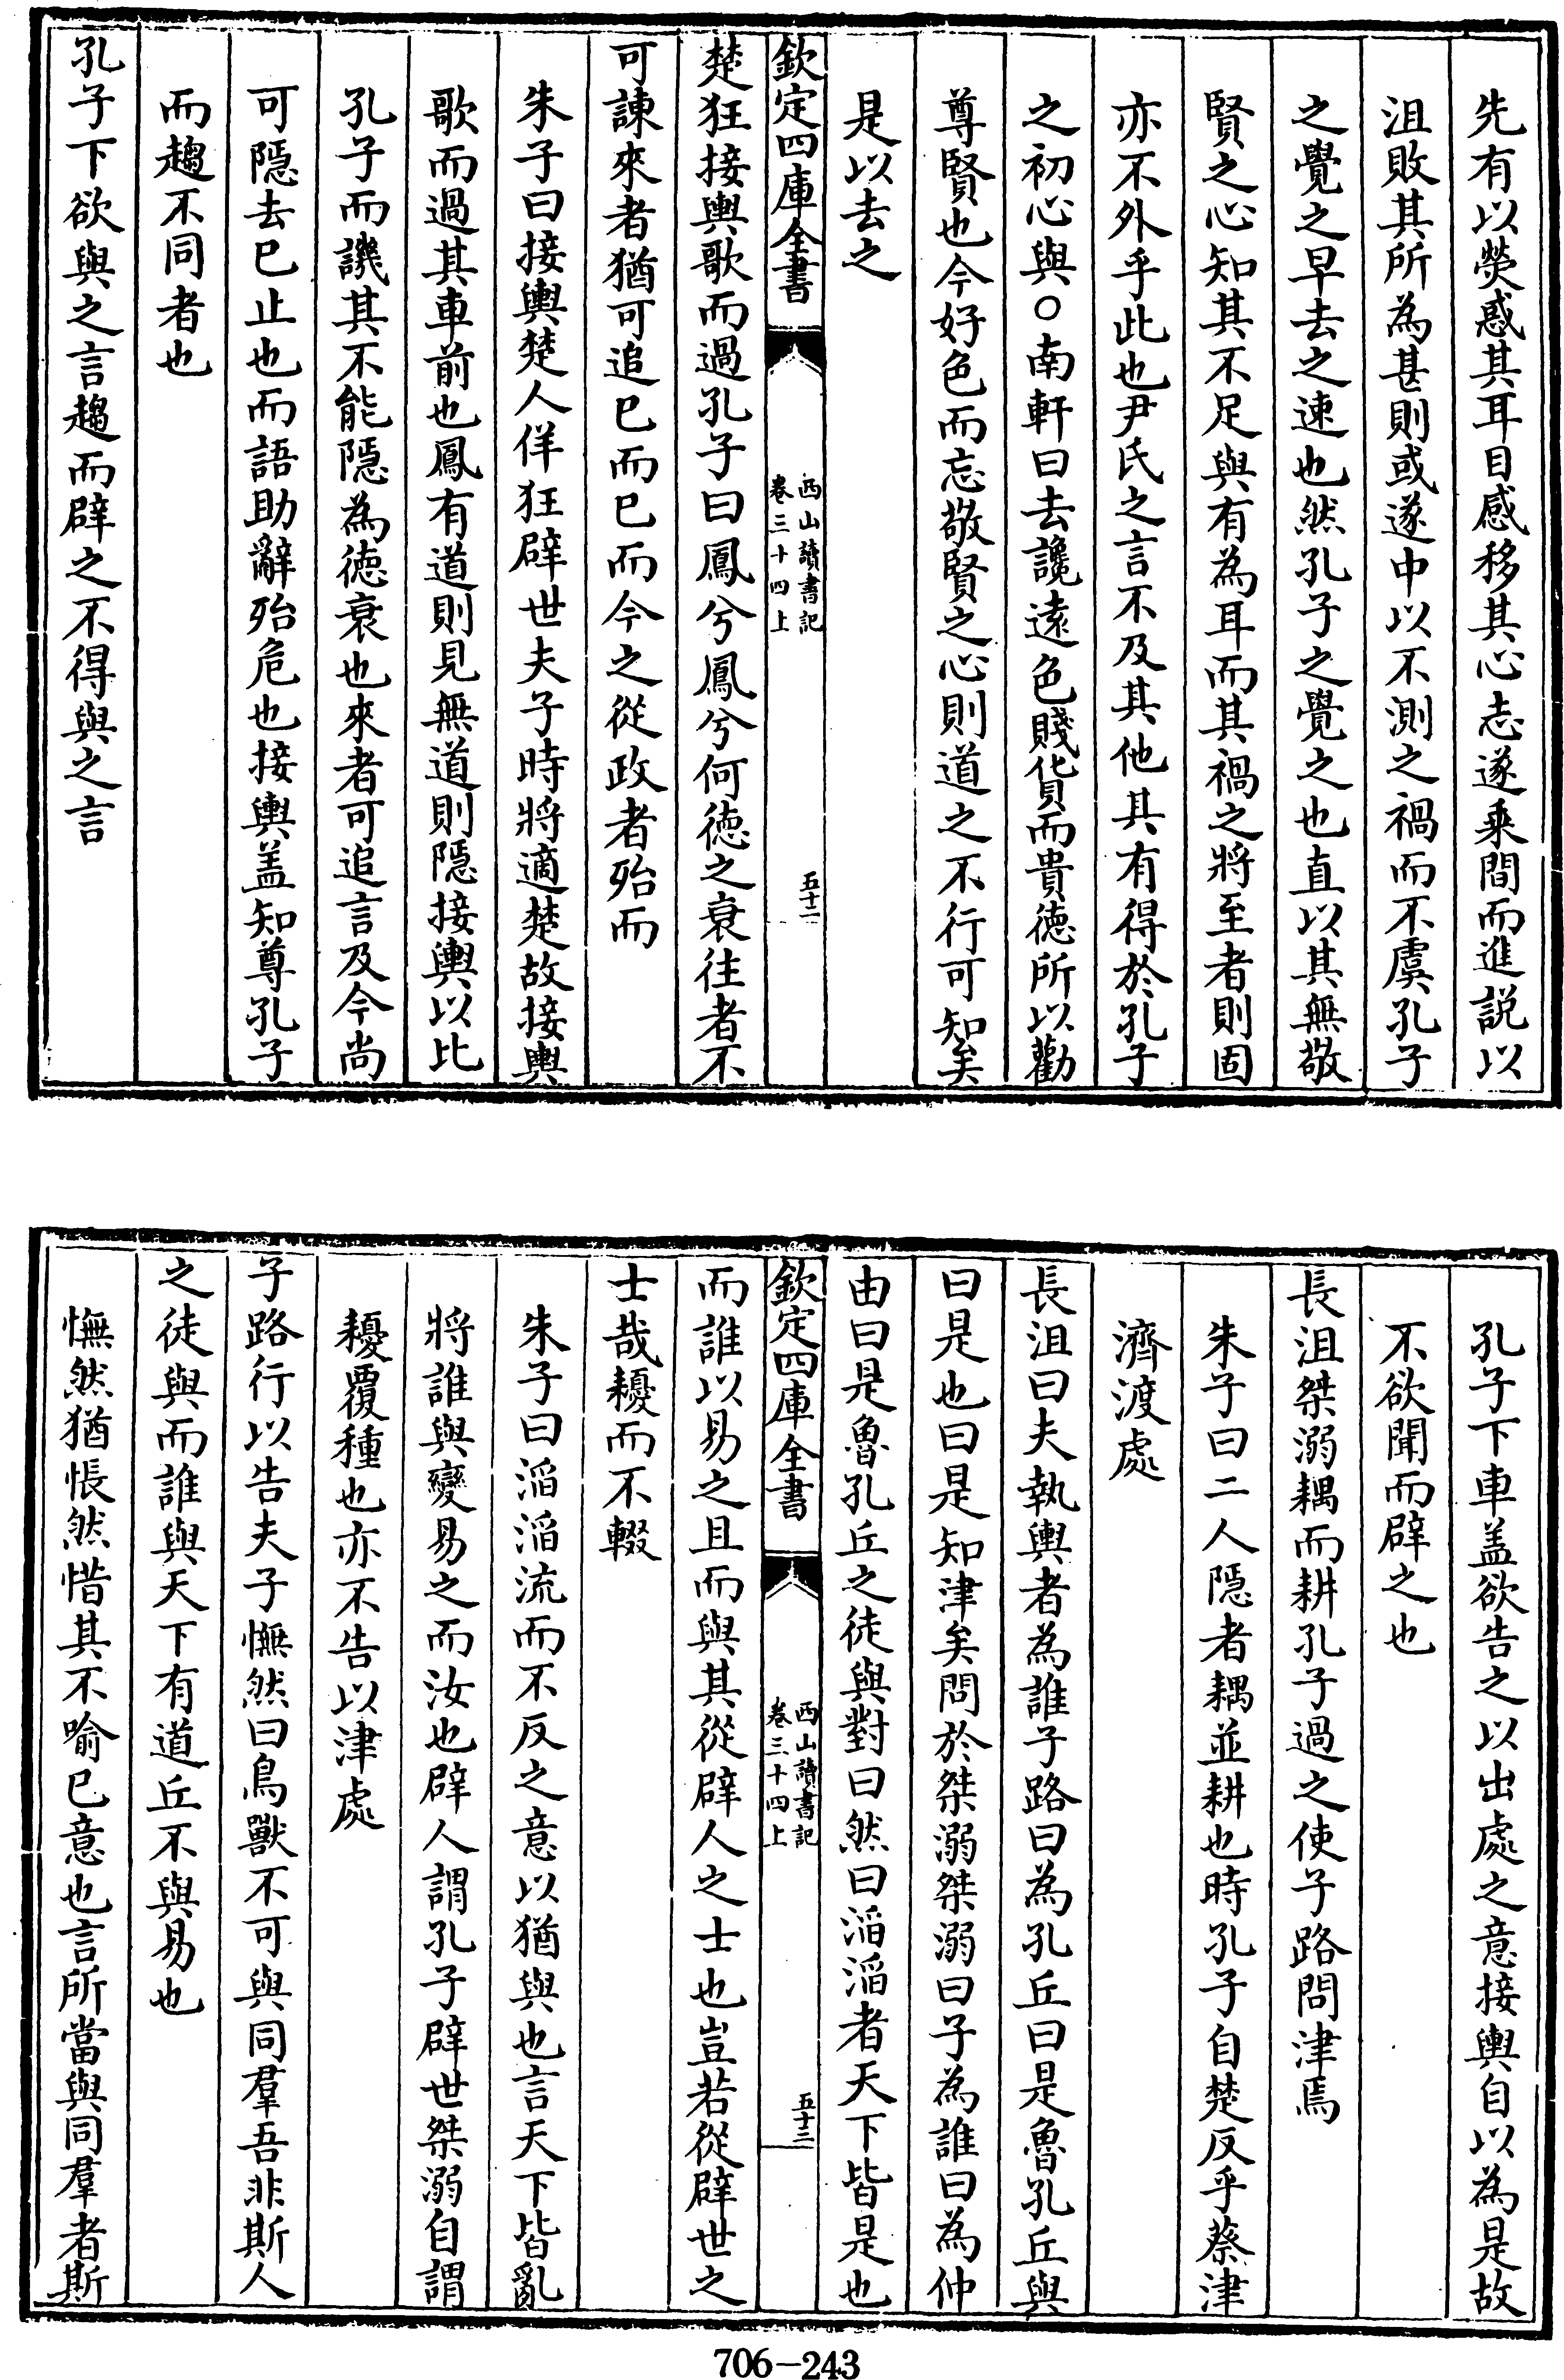 先有以熒惑其耳目感移其心志遂乘間而進説以
沮敗其所為甚則或遂中以不測之禍而不虞孔子
之覺之早去之速也然孔子之覺之也直以其無敬
賢之心知其不足與有為耳而其禍之將至者則固
亦不外乎此也尹氏之言不及其他其有得於孔子
之初心與○南軒曰去讒遠色賤貨而貴徳所以勸
尊賢也今好色而忘敬賢之心則道之不行可知矣
是以去之
欽定四庫全書
西山讀書記
卷三十四上
五十二
楚狂接輿歌而過孔子曰鳳兮鳳兮何徳之衰往者不
可諫來者猶可追已而已而今之從政者殆而
朱子曰接輿楚人佯狂辟世夫子時將適楚故接輿
歌而過其車前也鳳有道則見無道則隠接輿以比
孔子而譏其不能隠為徳衰也來者可追言及今尚
可隠去已止也而語助辭殆危也接輿盖知尊孔子
而趨不同者也
孔子下欲與之言趨而辟之不得與之言
孔子下車盖欲告之以出處之意接輿自以為是故
不欲聞而辟之也
長沮桀溺耦而耕孔子過之使子路問津焉
朱子曰二人隠者耦並耕也時孔子自楚反乎蔡津
濟渡處
長沮曰夫執輿者為誰子路曰為孔丘曰是魯孔丘與
曰是也曰是知津矣問於桀溺桀溺曰子為誰曰為仲
由曰是魯孔丘之徒與對曰然曰滔滔者天下皆是也
欽定四庫全書
西山讀書記
卷三十四上
五十三
而誰以易之且而與其從辟人之士也豈若從辟世之
士哉耰而不輟
朱子曰滔滔流而不反之意以猶與也言天下皆亂
將誰與變易之而汝也辟人謂孔子辟世桀溺自謂
耰覆種也亦不告以津處
子路行以告夫子憮然曰鳥獸不可與同羣吾非斯人
之徒與而誰與天下有道丘不與易也
憮然猶悵然惜其不喻已意也言所當與同羣者斯
706-243